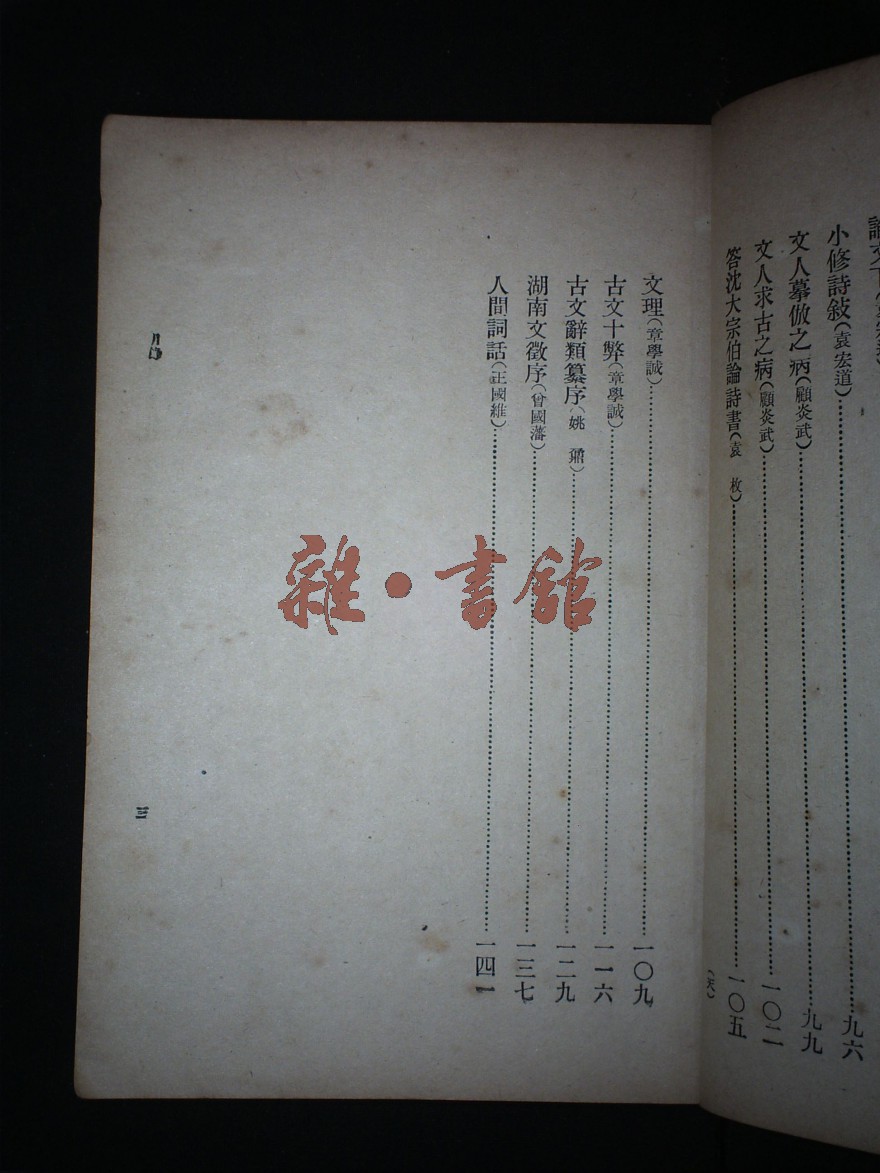 小修詩敍(袁宏道)……九六
文人摹倣之病(顧炎武)……九九
文人求古之病(顧炎武)……一〇二
答沈大宗伯論詩書(袁 枚)……一〇五
文理(章學誠)……一〇九
古文十弊(章學誠)……一一六
古文辭類纂序(姚 鼐)……一二九
湖南文徵序(曾國藩)……一三七
人間詞話(王國維)……一四一
目錄
三
雜·書館